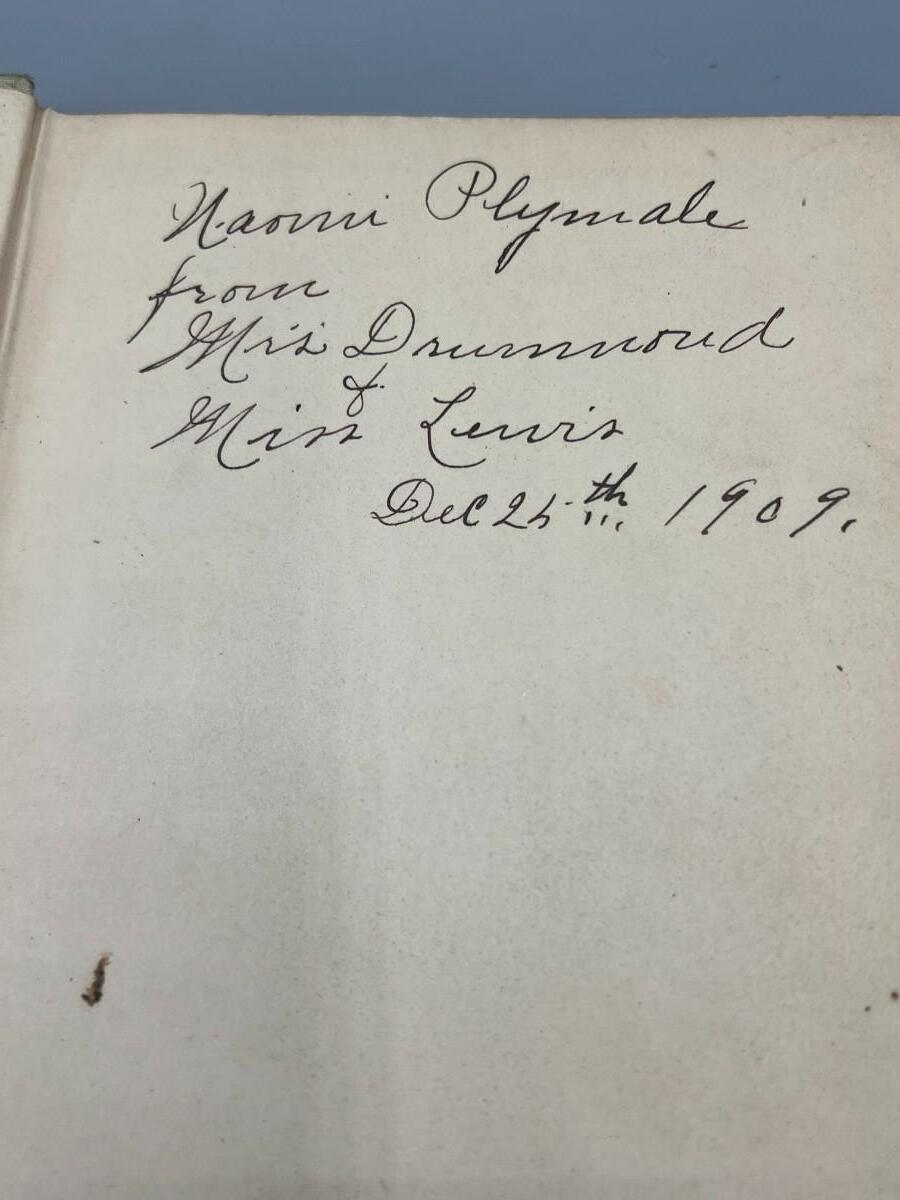 Naomi Plymale
from
Miss Drummond
&
Miss Lewis
Dec 25th 1909.